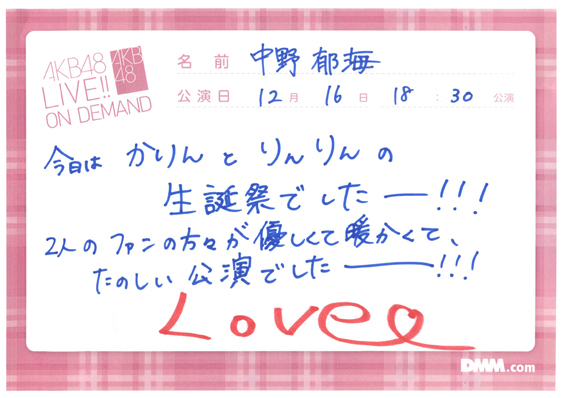 AKB48
LIVE!!
ON DEMAND
AKB
48
名前 中野 郁海
公演日 12月 16日 18:30 公演
今日は かりん と りんりん の
生誕祭でしたー!!!
2人の ファンの方々が優しくて暖かくて、
たのしい 公演でしたー!!!
Love
DMM.com